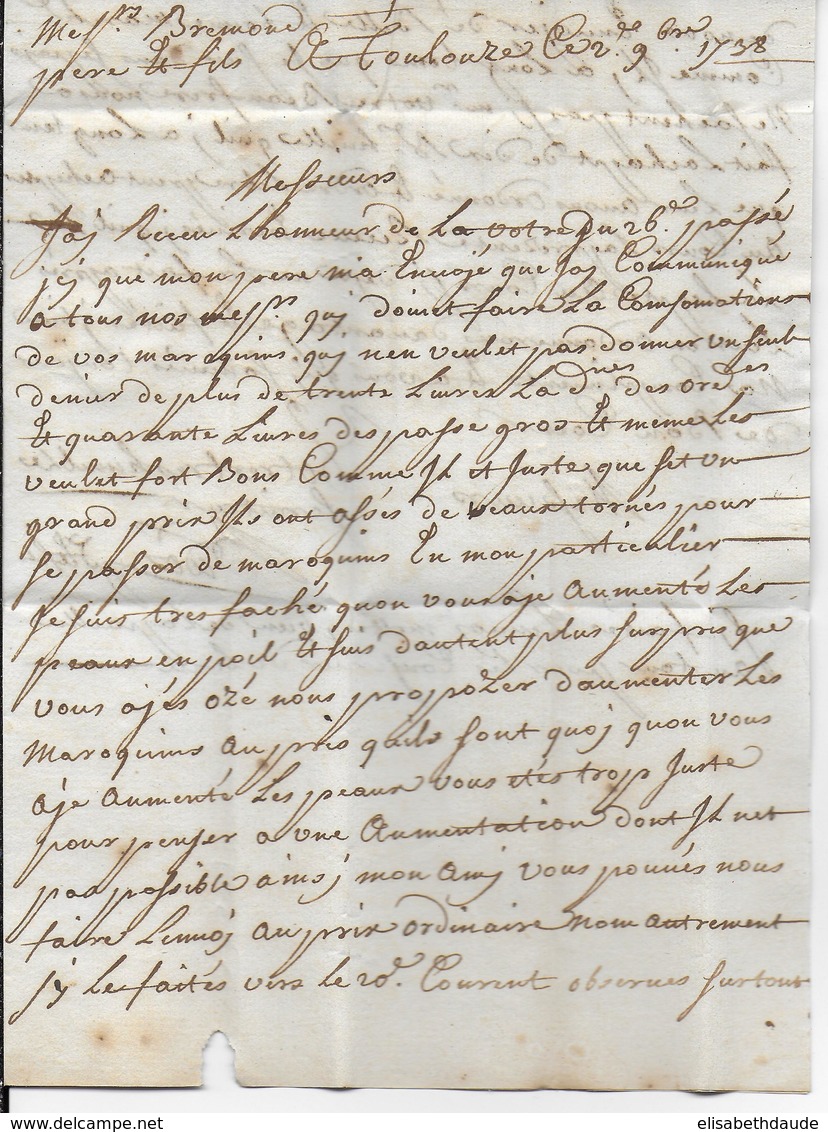 Mess.rs Bremond
pere & fils A Toulouze Ce 2.e 9.bre 1738
Messieurs
Jaj Receu Lhonneur de La votre du 26.e passé
jcj que mon pere ma Envojé que Jaj Communiqué
a tous nos mess.rs quj doivet faire La Consomations
de vos maroquins quj nen veulet pas donner un seul
denier de plus de trente Livres La d.nes des ord.es
& quarante Livres des passe gros & meme Les
veulet fort Bons Comme Jl et Juste que set un
grand prix Jls ont assés de veaux tornés pour
se passer de maroquins En mon particulier
Je suis tres faché quon vous aje Aumenté Les
peaux en poil & suis dautent plus surpris que
vous ajés ozé nous propozer daumenter Les
Maroquins Au pris quils sont quoj quon vous
aje Aumenté Les peaux vous etes trop Juste
pour penser a une Aumentation dont Jl net
pas possible ainsj mon Amj vous pouvés nous
faire Lenvoj au prix ordinaire Nom Autrement
sy Le faités vers Le 20.e Courent observes surtout
elisabethdaude